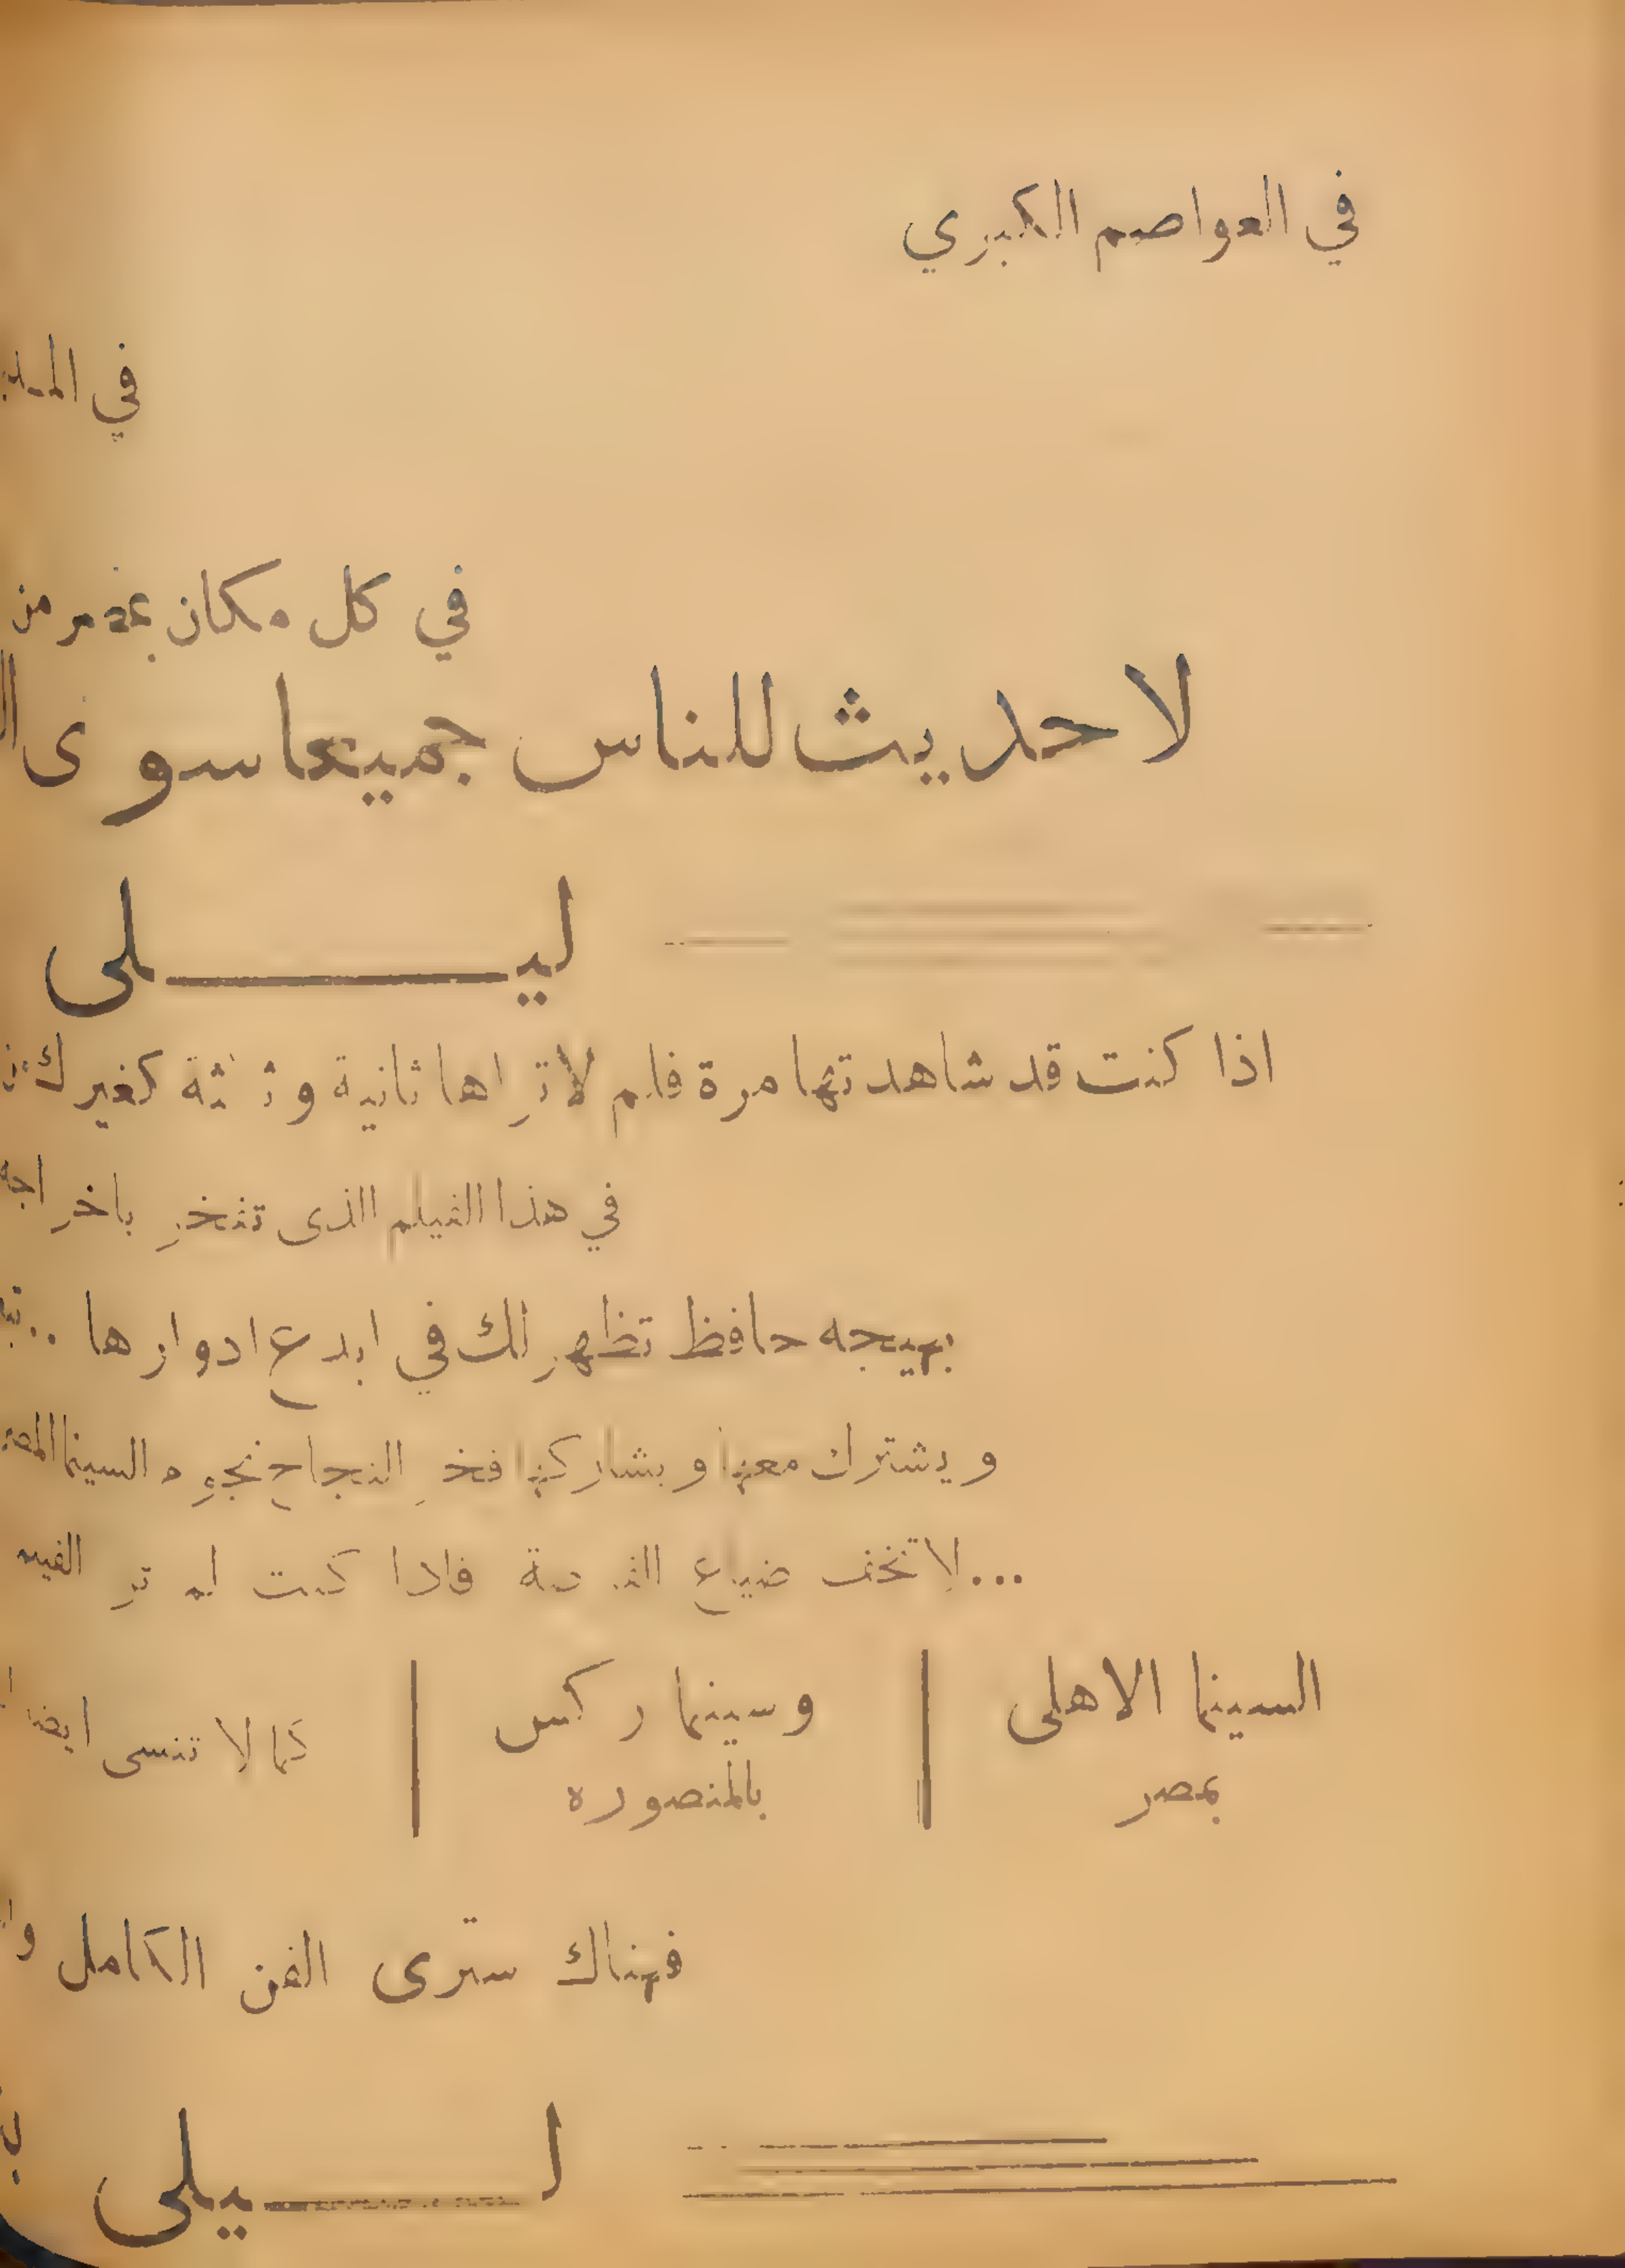 في العواصم الكبري
في
في كل مكان
لا حديث للناس جميعا سوى
ليـــــلى
اذا كنت قد شاهدتها مرة فلم لا تراها ثانية كغيرك
في هذا الفيلم الذى تفخر باخر
بهيجه حافظ تظهر لك في ابدع ادوارها ..
ويشترك معها ويشاركها فخر النجاح السينما
...لا تخف ضياع فاذا كنت لم تر
السينما الاهلى
بمصر
وسينما ركس
بالمنصوره
كما لا تنسى ايضا
فهناك سترى الفن الكامل
لـــــيلى